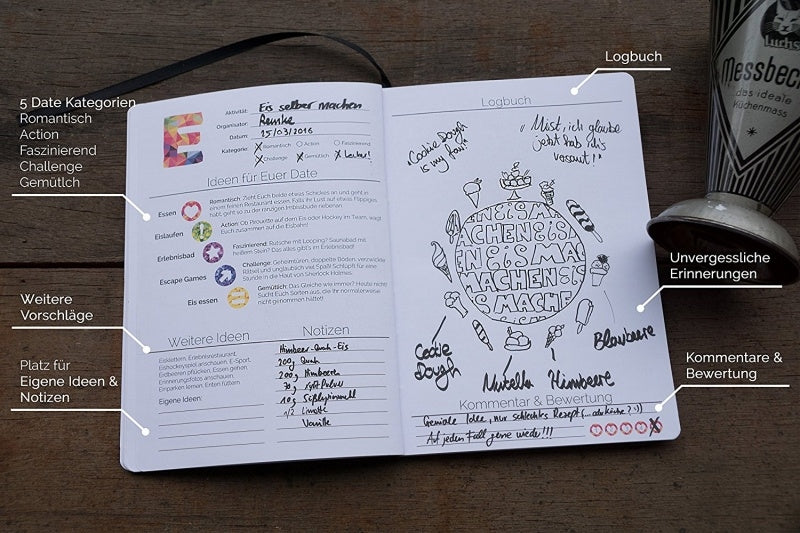 5 Date Kategorien
Romantisch
Action
Faszinierend
Challenge
Gemütlch
Weitere
Vorschläge
Platz für
Eigene Ideen &
Notizen
E
Aktivität: Eis selber machen
Organisator: Renke
Datum: 15/03/2016
Kategorie: X Romantisch Action Faszinierend
X Challenge X Gemütlich X Lecker!
Ideen für Euer Date
Essen
Romantisch: Zieht Euch beide etwas Schickes an und geht in
einem feinen Restaurant essen. Falls ihr Lust auf etwas Fippiges
habt, geht so zu der ranzigen Imbissbude nebenan.
Eislaufen
Action: Ob Pirouette auf dem Eis oder Hockey im Team, wagt
Euch zusammen auf die Eisbahn!
Erlebnisbad
Faszinierend: Rutsche mit Looping? Saunabad mit
heißem Stein? Das alles gibt's im Erlebnisbad!
Escape Games
Challenge: Geheimtüren, doppelte Böden, verzwickte
Rätsel und unglaublich viel Spaß! Schlüpft für eine
Stunde in die Haut von Sherlock Holmes.
Eis essen
Gemütlich: Das Gleiche wie immer? Heute nicht!
Sucht Euch Sorten aus, die ihr normalerweise
nicht genommen hättet!
Weitere Ideen
Eisklettern, Erlebnisrestaurant,
Eishockeyspiel anschauen, E-Sport,
Erdbeeren pflücken, Essen gehen,
Erinnerungsfotos anschauen,
Einparken lernen, Enten füttern
Eigene Ideen:
Notizen
Himbeer-Quark-Eis
200g Quark
200g Himbeeren
10g
1/2 Limette
Vanille
Logbuch
"Cookie Dough
is my
"Mist, ich glaube
jetzt hab ich's
versaut!"
EIS MACHEN
Cookie
Dough
Nutella
Himbeere
Blaubeere
Kommentar & Bewertung
Geniale Idee, nur schlechtes Rezept
Auf jeden Fall gerne wieder!!!
Logbuch
Unvergessliche
Erinnerungen
Kommentare &
Bewertung
Luchs
Messbech
das ideale
Küchenmass